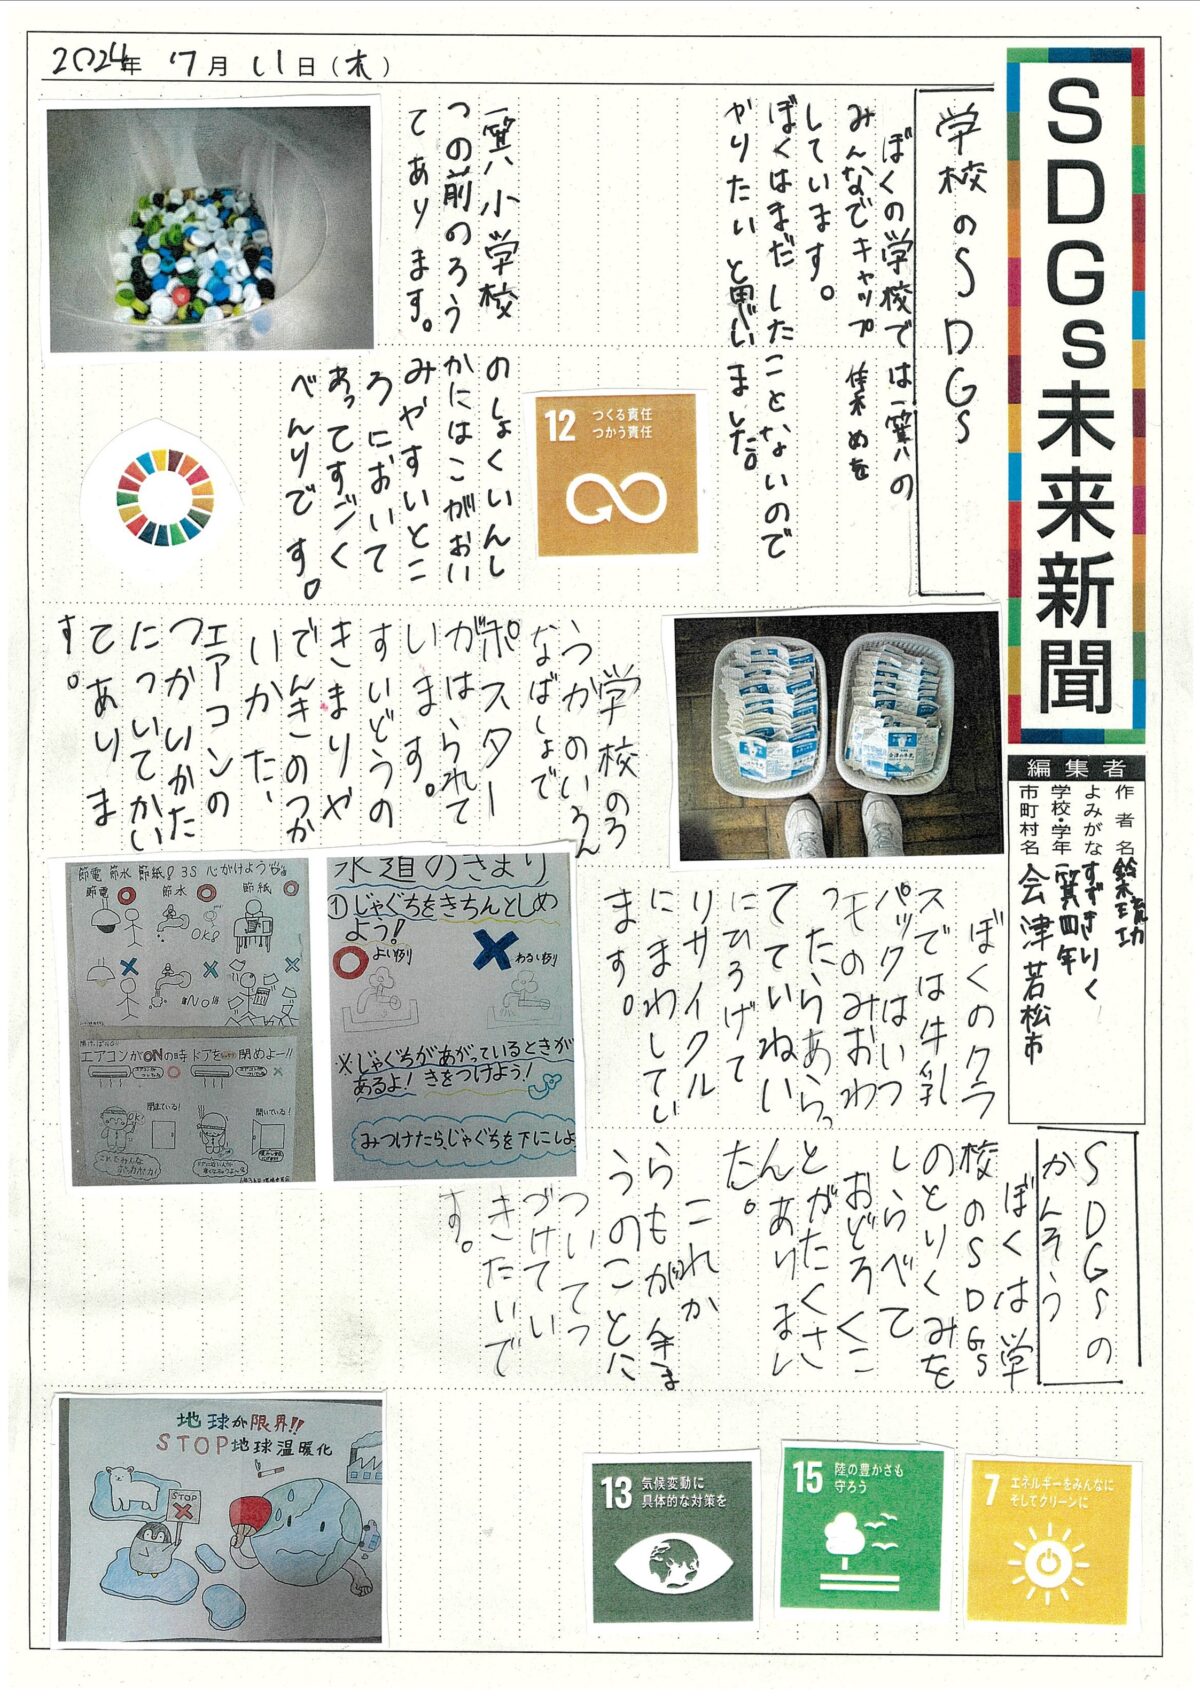 2024年 7月 11日(木)
SDGs未来新聞
編集者
作者名 鈴木琉功
よみがな すずきりく
学校・学年 一箕四年
市町村名 会津若松市
学校のSDGS
ぼくの学校では一箕ハの
みんなでキャップ集めを
しています。
ぼくはまだしたことないので
やりたいと思いました。
一箕ハ小学校
つの前のろう
てあります。
のしょくいんし
かにはこがおい
みやすいとこ
ろにおいて
あってすごく
べんりです。
12 つくる責任
つかう責任
学校のろ
うかのいろん
なばしょで
ポスター
がはられて
います。
すいどうの
きまりや
でんきのつか
いかた、
エアコンの
つかいかた
についてかい
てありま
す。
ぼくのクラ
スでは牛乳
パックはいつ
ものみおわ
ったらあらっ
てていねい
にひろげて
リサイクル
にまわしてい
ます。
節電 節水 節紙! 3S 心がけよう
節電
節水
節紙
OK!
No!!
エアコンがONの時ドアを閉めよー!!
閉まている!
開いている!
水道のきまり
①じゃぐちをきちんとしめ
よう!
よい例
わるい例
※じゃぐちがあがっているときが
あるよ! きをつけよう!
みつけたら、じゃぐちを下にしよ
SDGSの
かんそう
ぼくは学
校のSDGS
のとりくみを
しらべて
おどろくこ
とがたくさ
んありまし
た。
これか
らもがんま
うのことに
ついてっ
づけてい
きたいで
す。
地球が限界!!
STOP地球温暖化
STOP
13 気候変動に
具体的な対策を
15 陸の豊かさも
守ろう
7 エネルギーをみんなに
そしてクリーンに